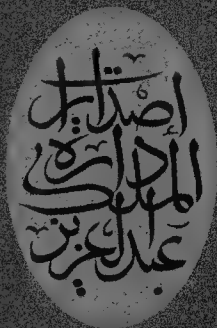 اصدارات
دارة الملك
عبدالعزيز